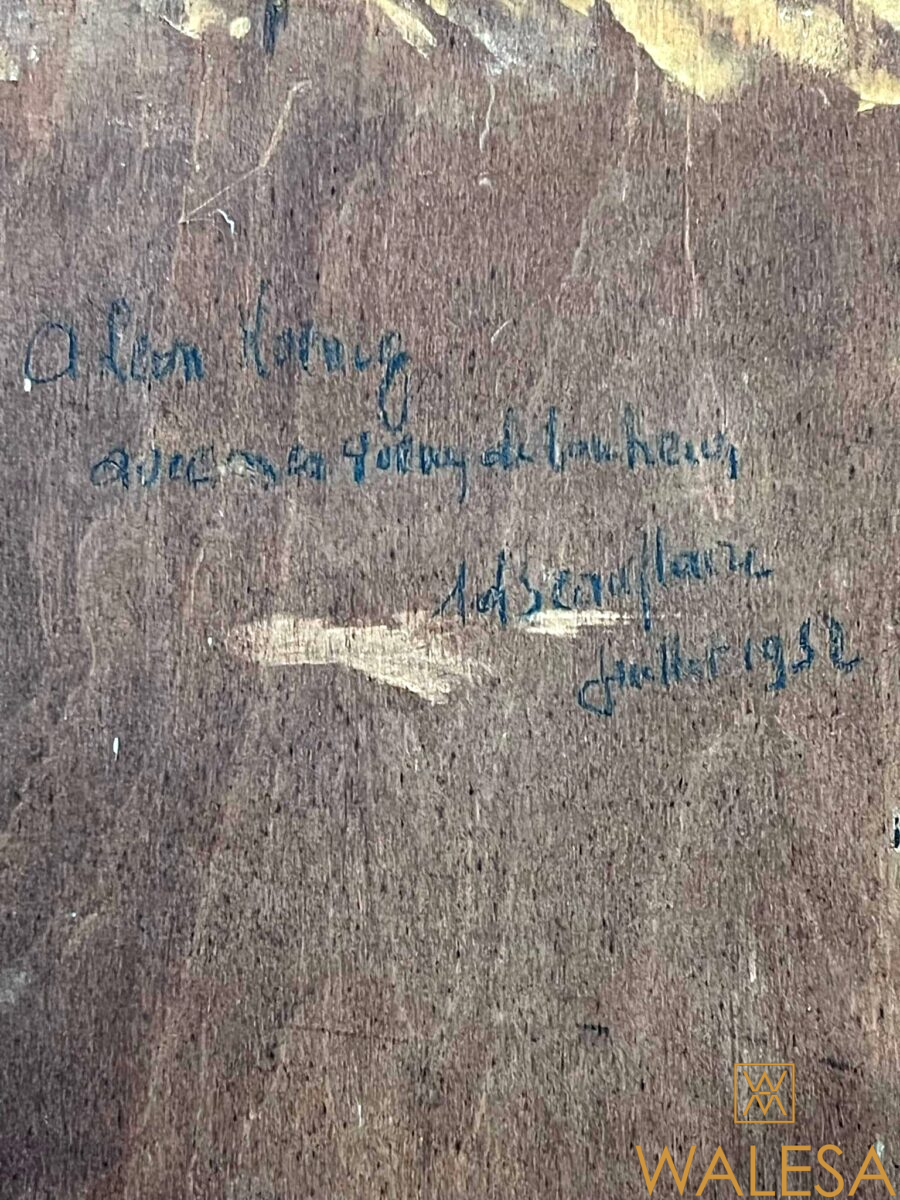 A Leon Koenig
avec mes voeux de bonheur
Ad Beaufrère
Juillet 1952
WM
WALESA